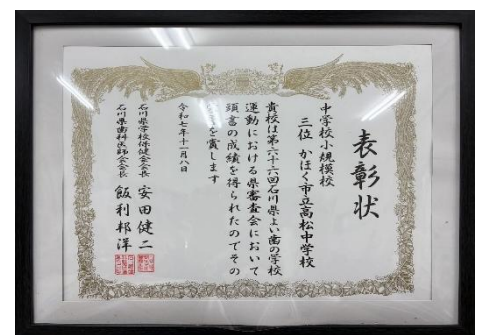 表彰状
中学校小規模校
三位 かほく市立高松中学校
貴校は第六十六回石川県よい歯の学校
運動における県審査会において
頭書の成績を得られたのでその
栄誉を賞します
令和七年十一月八日
石川県学校保健会会長 安田健二
石川県歯科医師会会長 飯利邦洋